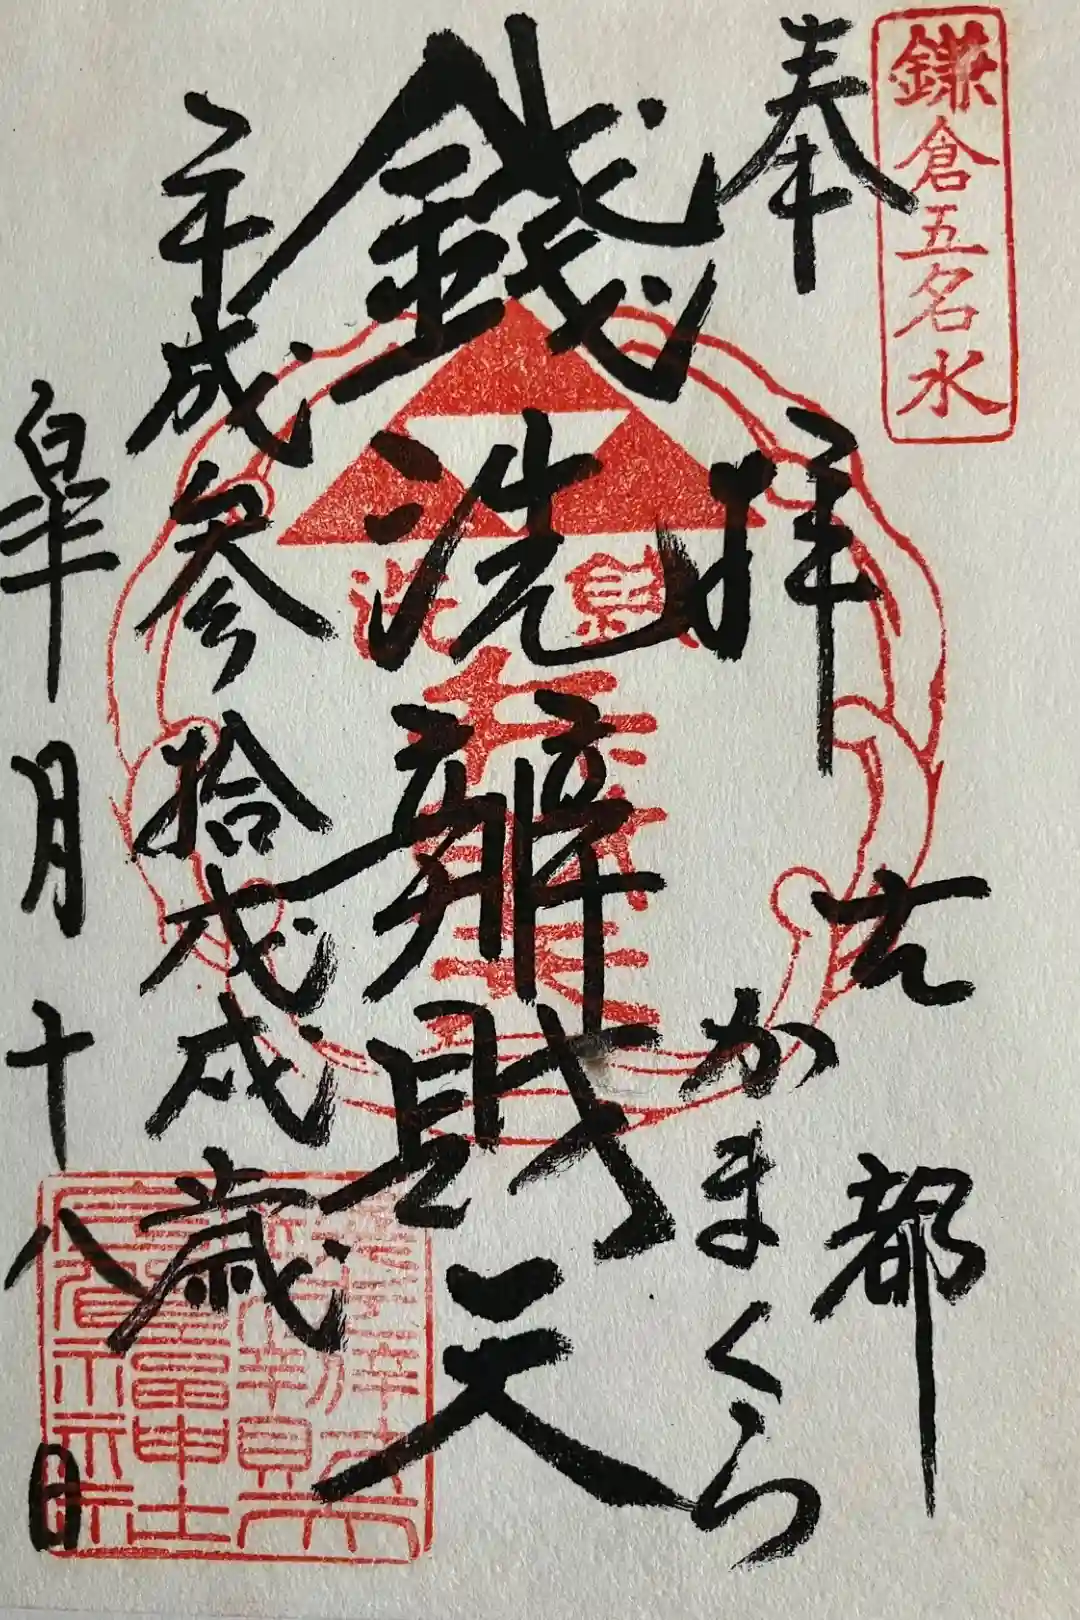 鎌倉五名水
奉拝
古都
かまくら
錢洗辨財天
平成参拾戊戌歳
皐月十八日
錢洗